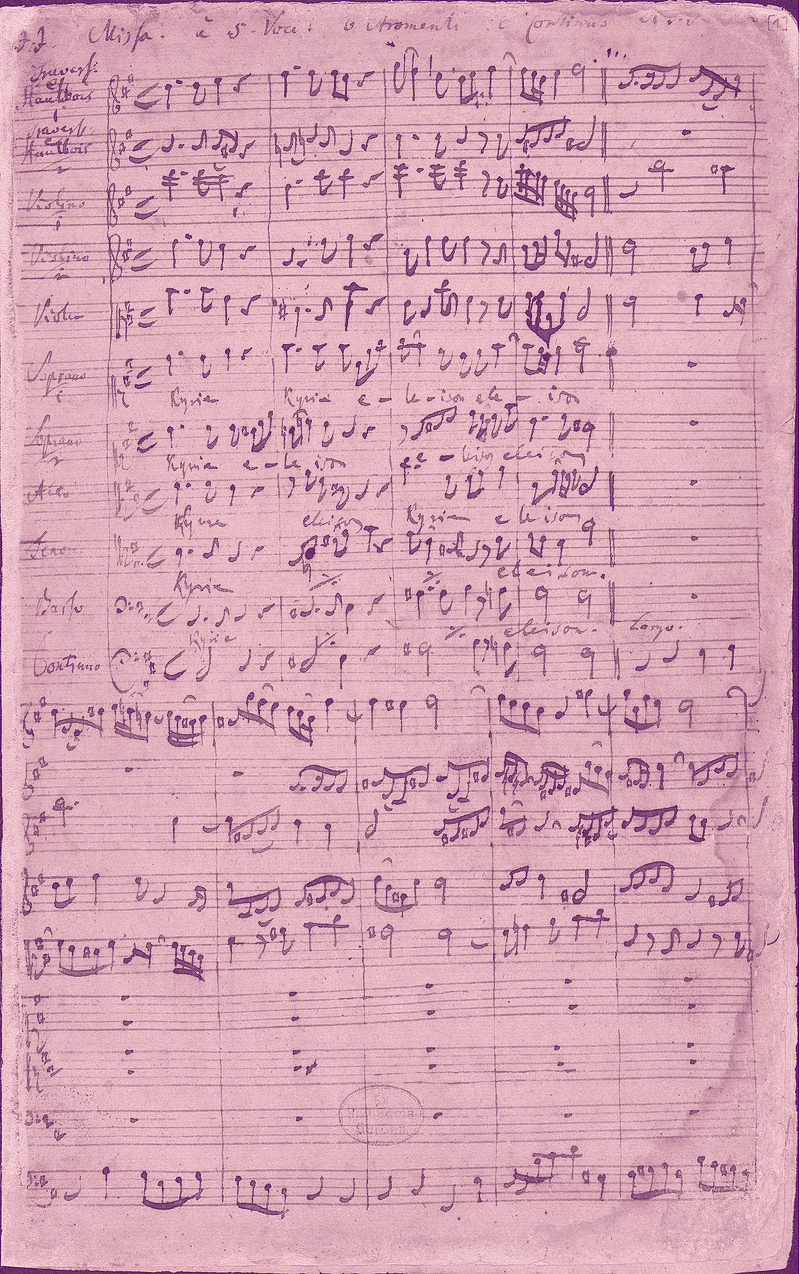 J. J. Missa. à 5. Voci. 6 stromenti e continuo
[1]
Travers:
et
Hautbois
1
Travers:
Hautbois
2
Violino
1
Violino
2
Viola
Soprano
1
Kyrie Kyrie e - le - ison ele - ison
Soprano
2
Kyrie e - le - ison e - leison eleison
Alto
Kyrie eleison Kyrie eleison
Tenor
Kyrie eleison.
Basso
Kyrie eleison. Largo.
Continuo